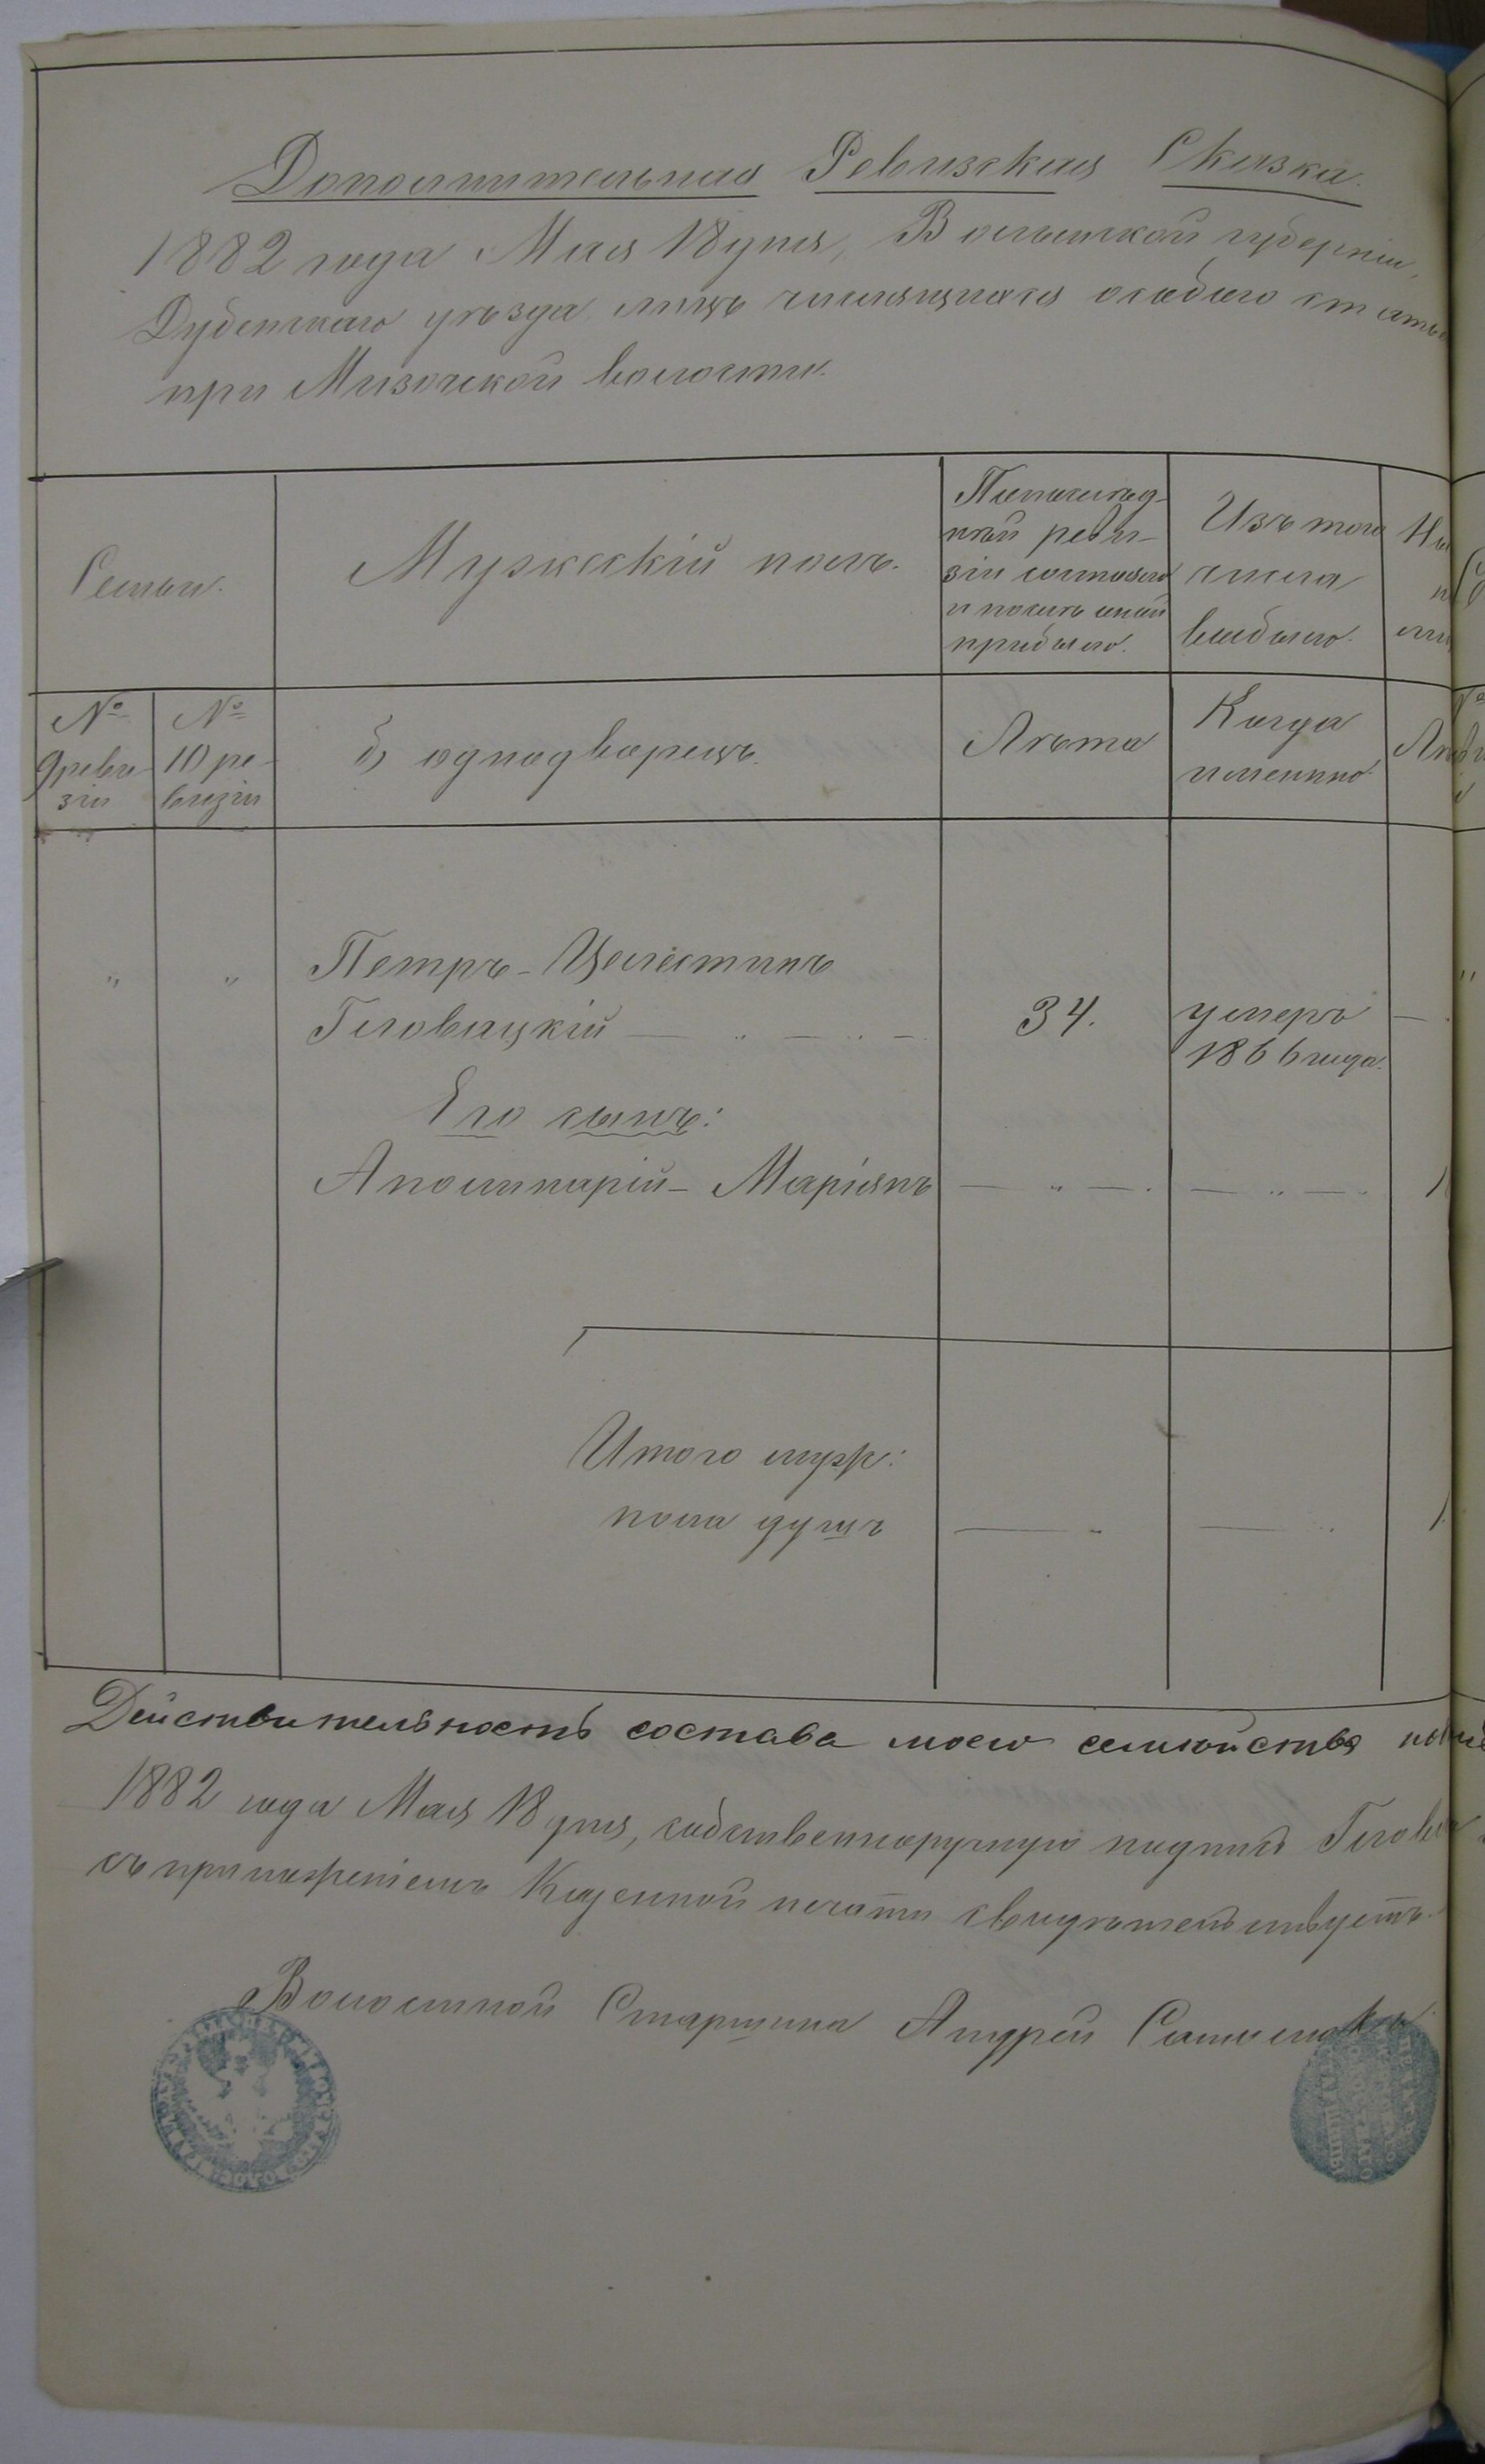 Дополнительная Ревизская Сказка.
1882 года Мая 18 дня, Волынской губерніи,
Дубенскаго уѣзда лицъ числящихся особою статьею
при Мизочской волости.
Семьи.
Мужескій полъ.
По послѣд-
ней реви-
зіи состояло
и послѣ оной
прибыло.
Изъ того
числа
выбыло.
№
9 реви-
зіи
№
10 ре-
визіи
б) однодворецъ.
Лѣта
Когда
именно
" "
Петръ-Целестинъ
Гловацкій — " — " —
34.
умеръ
1866 года.
Его сынъ:
Аполинарій - Маріянъ — " — . — " — .
Итого муж:
пола душъ — " — "
Действительность состава моего семейства
1882 года Мая 18 дня, собственноручную подпись
съ приложеніемъ Казенной печати свидѣтельствуетъ.
Волостной Старшина Андрей